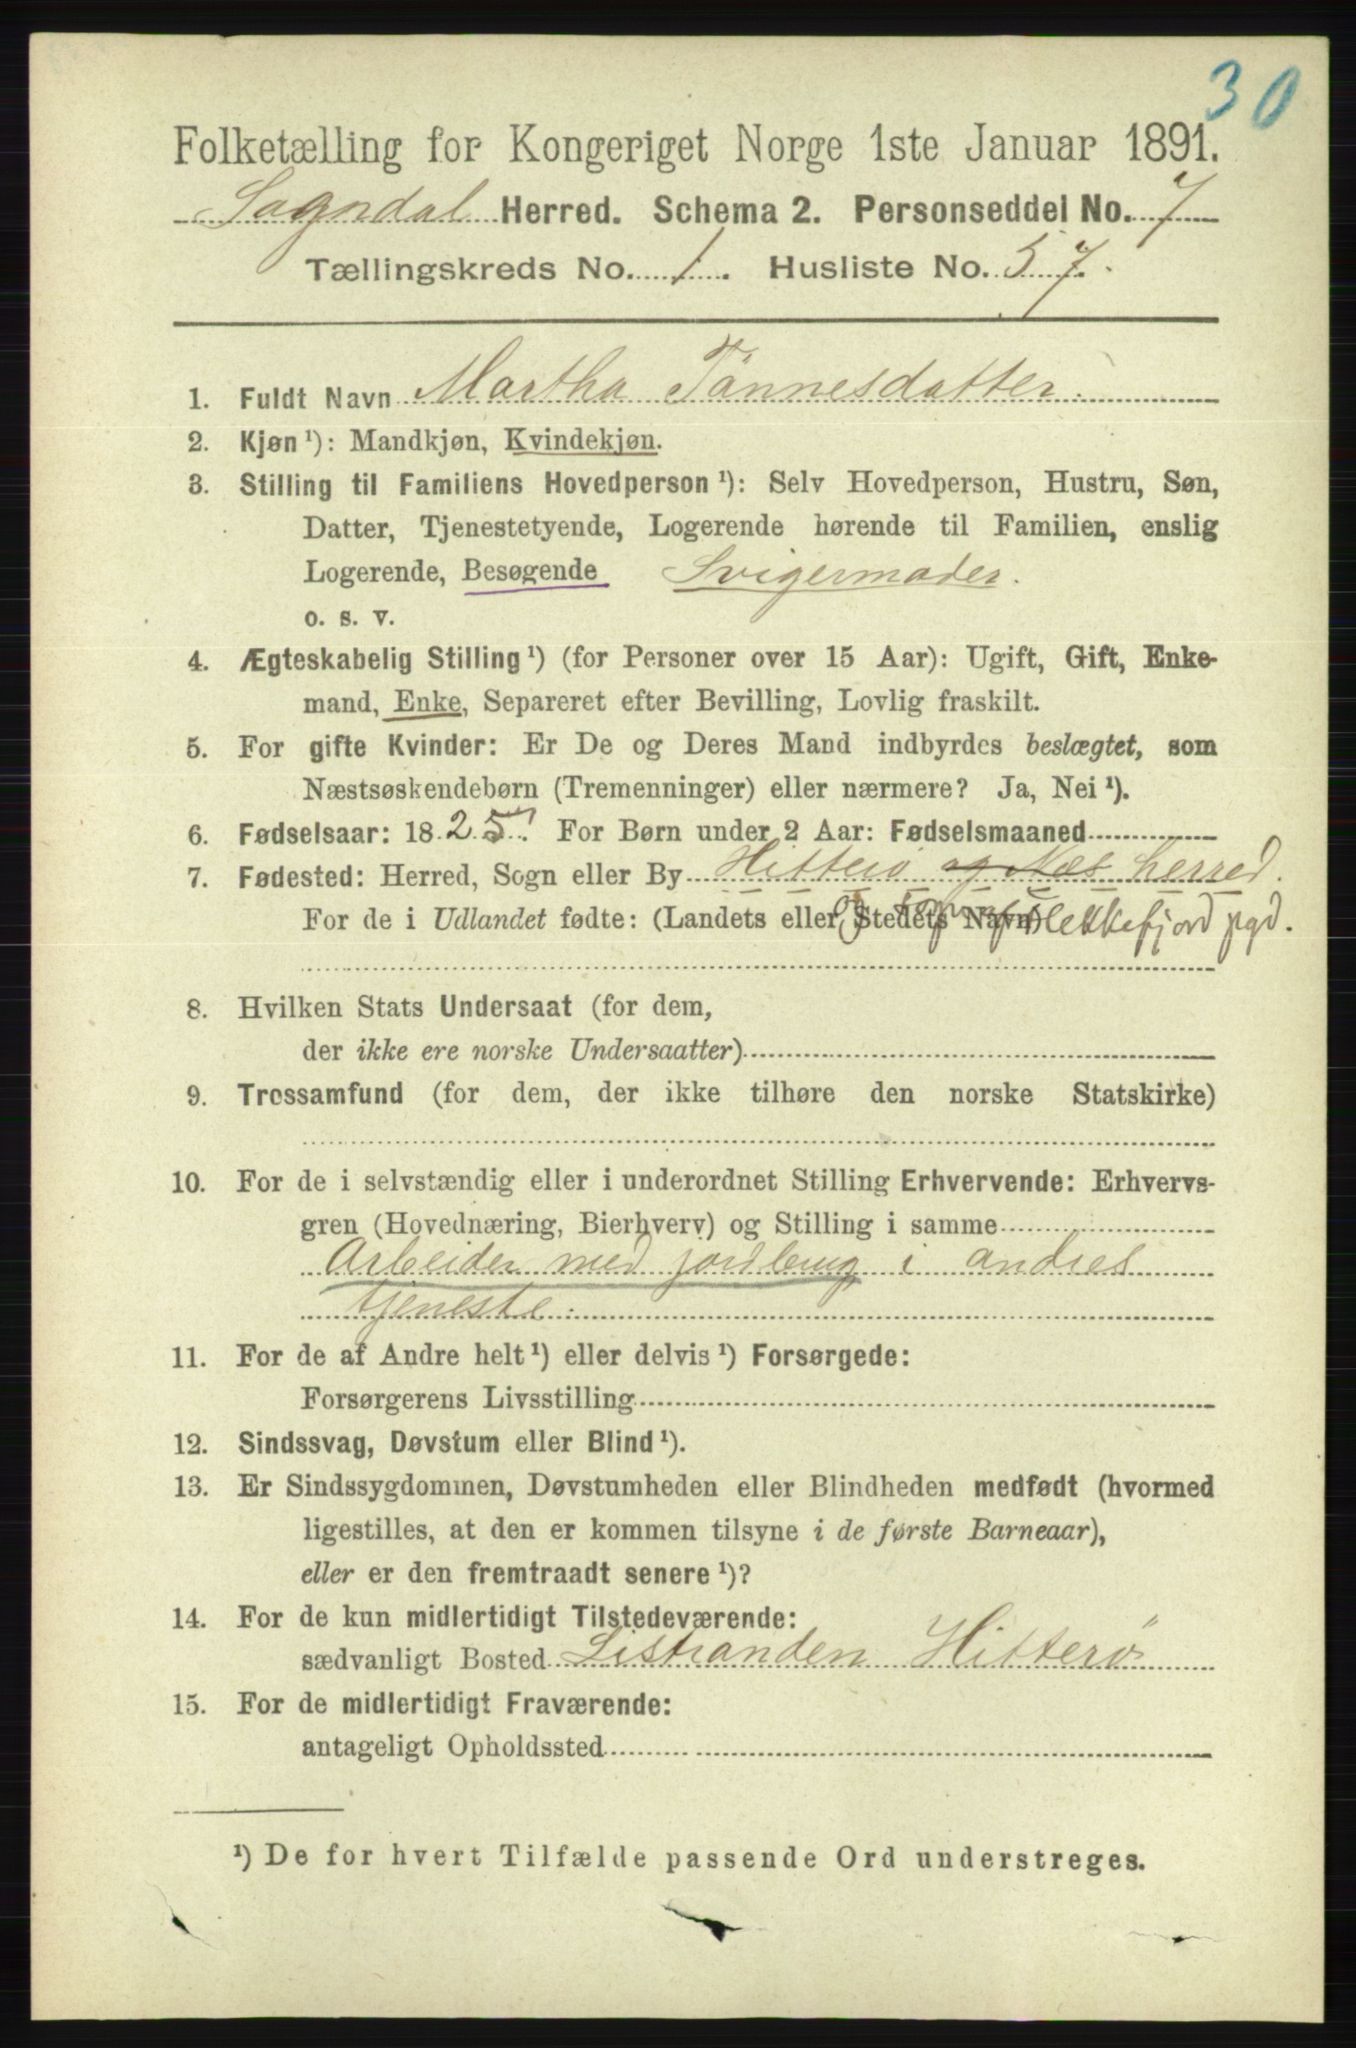 30
Folketælling for Kongeriget Norge 1ste Januar 1891.
Sogndal Herred. Schema 2. Personseddel No. 7
Tællingskreds No. 1. Husliste No. 57.
1. Fuldt Navn Martha Tönnesdatter.
2. Kjøn ¹): Mandkjøn, Kvindekjøn.
3. Stilling til Familiens Hovedperson ¹): Selv Hovedperson, Hustru, Søn,
Datter, Tjenestetyende, Logerende hørende til Familien, enslig
Logerende, Besøgende Svigermoder.
o. s. v.
4. Ægteskabelig Stilling ¹) (for Personer over 15 Aar): Ugift, Gift, Enke-
mand, Enke, Separeret efter Bevilling, Lovlig fraskilt.
5. For gifte Kvinder: Er De og Deres Mand indbyrdes beslægtet, som
Næstsøskendebørn (Tremenninger) eller nærmere? Ja, Nei ¹).
6. Fødselsaar: 1825. For Børn under 2 Aar: Fødselsmaaned
7. Fødested: Herred, Sogn eller By Hitterø og Næs herred.
For de i Udlandet fødte: (Landets eller Stedets Navn) og Flekkefjord pgd.
8. Hvilken Stats Undersaat (for dem,
der ikke ere norske Undersaatter)
9. Trossamfund (for dem, der ikke tilhøre den norske Statskirke)
10. For de i selvstændig eller i underordnet Stilling Erhvervende: Erhvervs-
gren (Hovednæring, Bierhverv) og Stilling i samme
Arbeider med jordbrug i andres
tjeneste.
11. For de af Andre helt ¹) eller delvis ¹) Forsørgede:
Forsørgerens Livsstilling
12. Sindssvag, Døvstum eller Blind ¹).
13. Er Sindssygdommen, Døvstumheden eller Blindheden medfødt (hvormed
ligestilles, at den er kommen tilsyne i de første Barneaar),
eller er den fremtraadt senere ¹)?
14. For de kun midlertidigt Tilstedeværende:
sædvanligt Bosted Listranden Hitterö
15. For de midlertidigt Fraværende:
antageligt Opholdssted
¹) De for hvert Tilfælde passende Ord understreges.